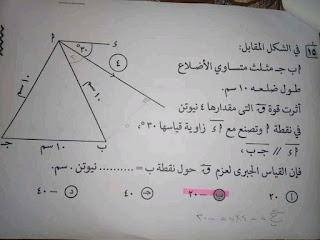 ١٥ في الشكل المقابل:
٢ ب جـ مثلث متساوي الأضلاع
طول ضلعه ١٠ سم.
أثرت قوة ق التى مقدارها ٤ نيوتن
في نقطة ٢ وتصنع مع ٢ء زاوية قياسها ٣٠°،
٢ء // جـ ب،
فإن القياس الجبرى لعزم ق حول نقطة ب = .......... نيوتن . سم.
٢ ء
٣٠°
٤
١٠ سم ١٠ سم
جـ ١٠ سم ب
أ ٢٠ ب -٢٠ جـ ٤٠ د -٤٠